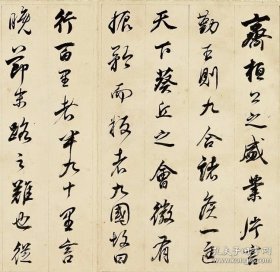 齊桓公之盛業片言
勤王則九合諸侯一匡
天下葵丘之會微有
振矜而叛者九國故曰
行百里者半九十里言
晚節末路之難也從